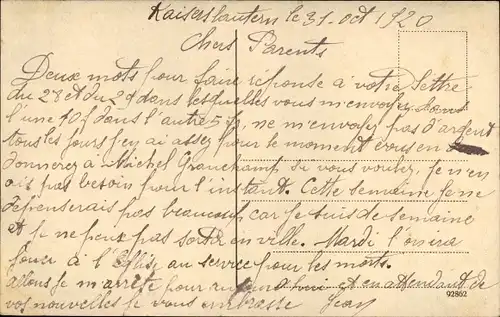 Kaiserslautern le 31 oct 1920
Chers Parents
Deux mots pour faire réponse à votre lettre
du 28 et du 29 dans lesquelles vous m'envoyez dans
l'une 10f dans l'autre 5f, ne m'envoyez pas d'argent
tous les jours j'en ai assez pour le moment vous en
donnerez a Michel Granchamp si vous voulez, je n'en
ais pas besoin pour l'instant. Cette semaine je ne
depenserais pas beaucoup car je suis de semaine
et je ne peux pas sortir en ville. Mardi l'on ira
jouer à l'Eglise au service pour les morts.
Allons je m'arrête pour et en attendant de
vos nouvelles je vous embrasse Jean
92862